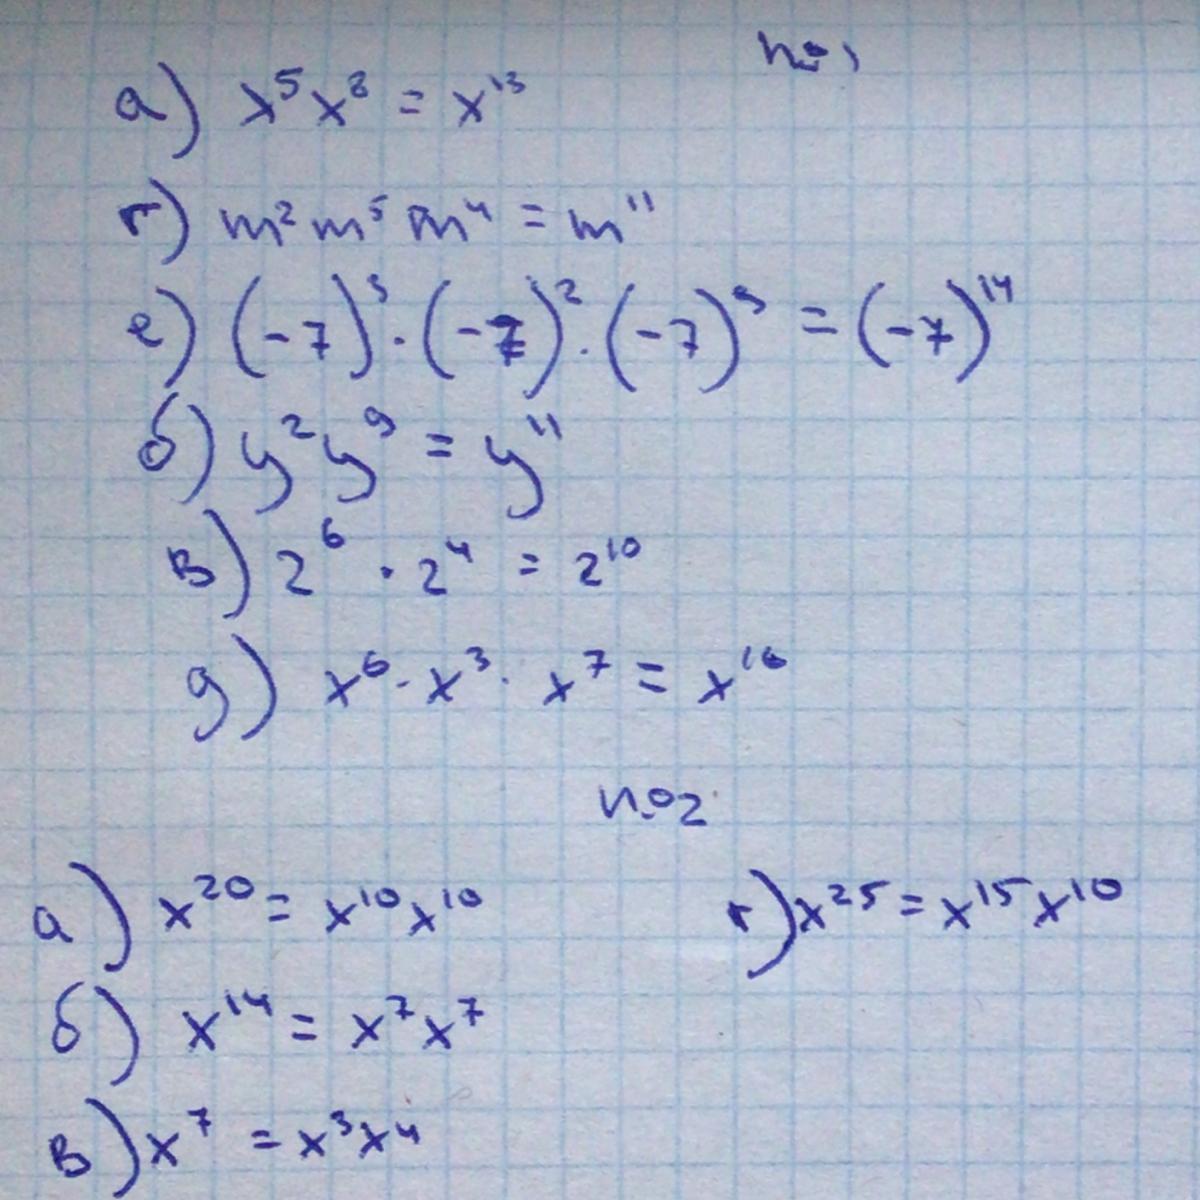 №1
а) x⁵x⁸ = x¹³
г) m² m⁵ m⁴ = m¹¹
е) (-7)³ · (-7)² · (-7)⁹ = (-7)¹⁴
б) y²y⁹ = y¹¹
в) 2⁶ · 2⁴ = 2¹⁰
д) x⁶ · x³ · x⁷ = x¹⁶
№2
а) x²⁰ = x¹⁰x¹⁰
г) x²⁵ = x¹⁵x¹⁰
б) x¹⁴ = x⁷x⁷
в) x⁷ = x³x⁴